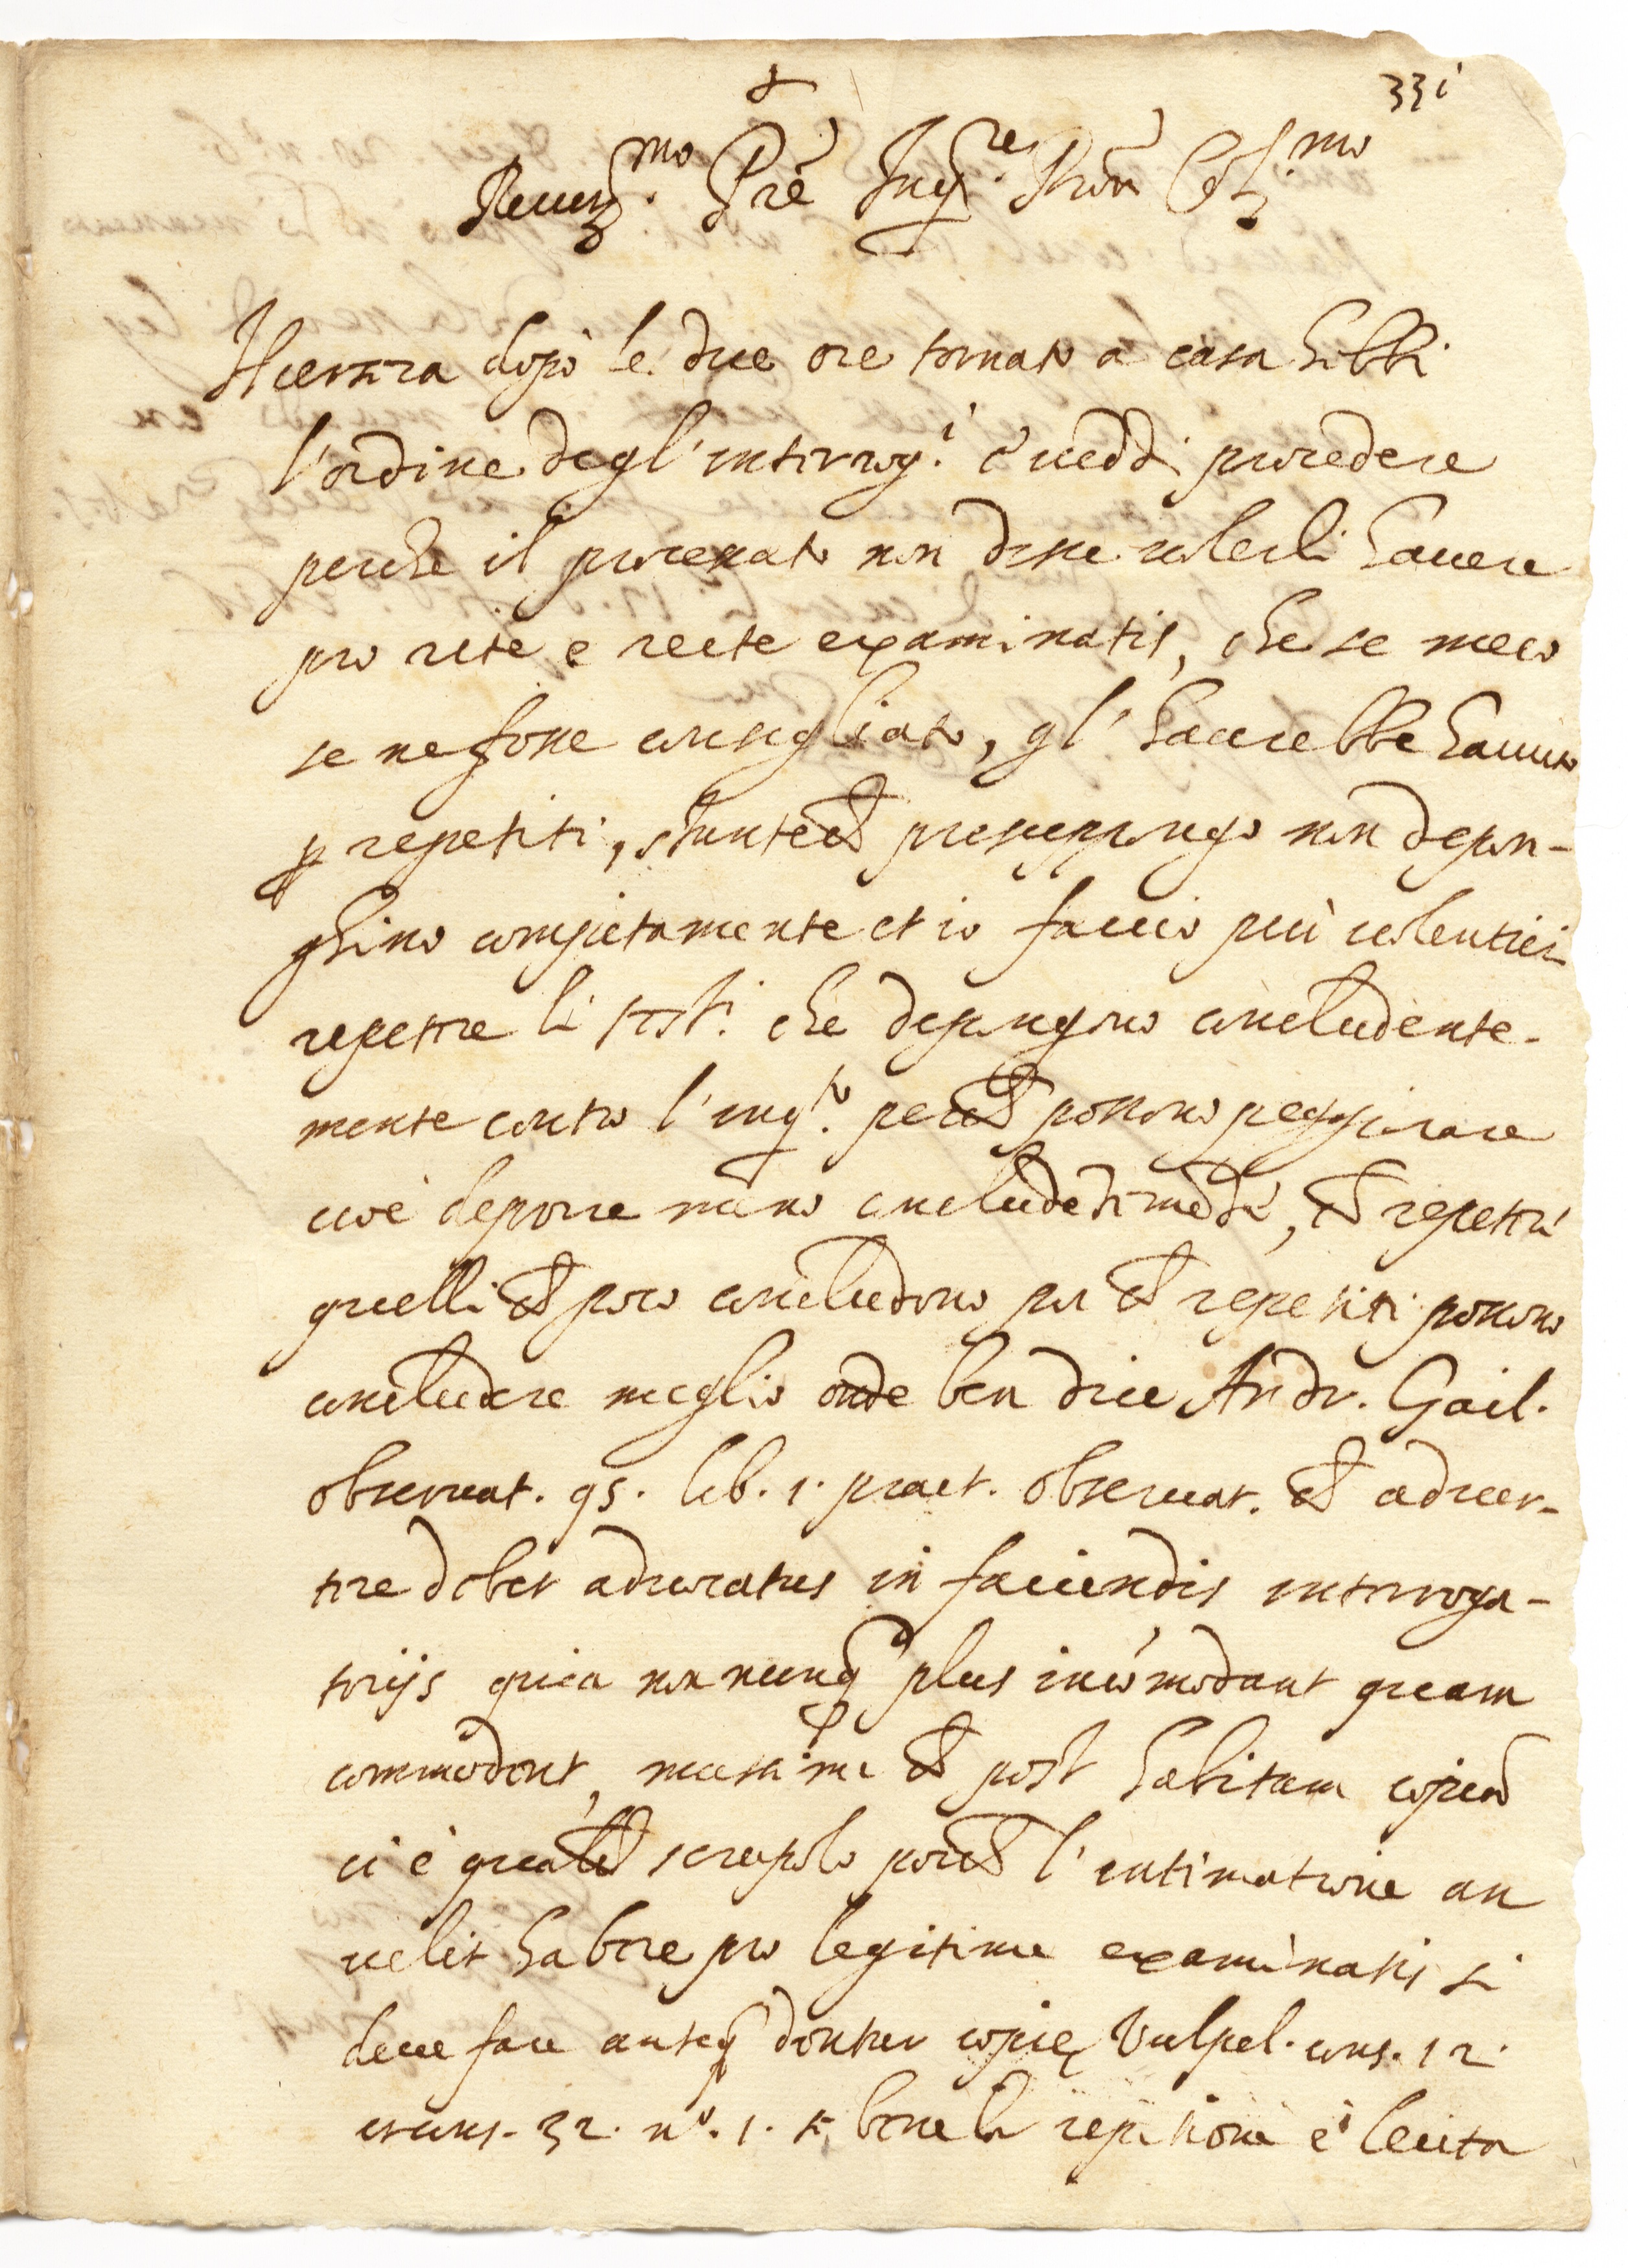 331
+
Reuer.mo Pre Inq.re Pron Col.mo
Hiersera dopò le due ore tornato a casa hebbi
l'ordine degl'interrog.i e uedd. procedere
perche il processato non disse uolerli hauere
pro rite e recte examinatis, che se meco
se ne fosse consigliato, gl' hauerebbe hauuto
p repetiti, presuppongo non depon-
ghino compietamente et io faccio più uolentieri
repetere li test.i che depongono concludente-
mente contro l'inq.to perche possono peggiorare
cioè deporre meno concludetimete, che repetere
quelli che poco concludono poi che repetiti possono
concludere meglio onde ben dice Andr. Gail.
obseruat. 95. lib. 1. pract. obseruat. che aduer-
tere debet aduocatus in faciendis interroga-
torijs quia non nunq plus incomodant quam
commodent, maxime che post habitam copiam
ci è qualche scrupolo poiche l'intimatione an
uelit habere pro legitime examinatis si
deue fare anteq dentur copie Vulpel. cons. 12.
et cons. 32. n.o 1. se bene la repetitione è lecita